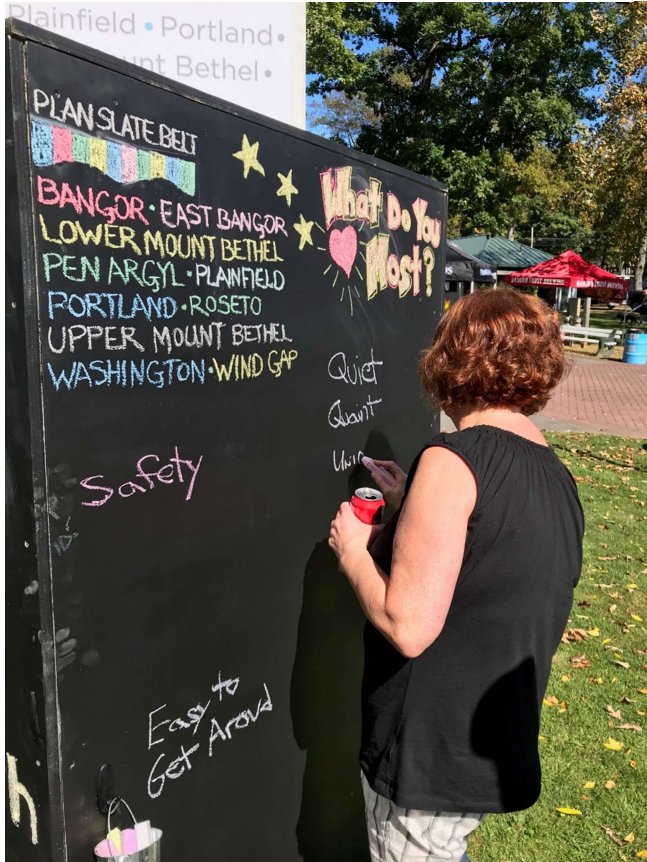 Plainfield • Portland •
unt Bethel •
PLAN SLATE BELT
BANGOR • EAST BANGOR
LOWER MOUNT BETHEL
PEN ARGYL • PLAINFIELD
PORTLAND • ROSETO
UPPER MOUNT BETHEL
WASHINGTON • WIND GAP
What Do You
Most?
Quiet
Quaint
Uniq
Safety
Easy to
Get Aroud
h